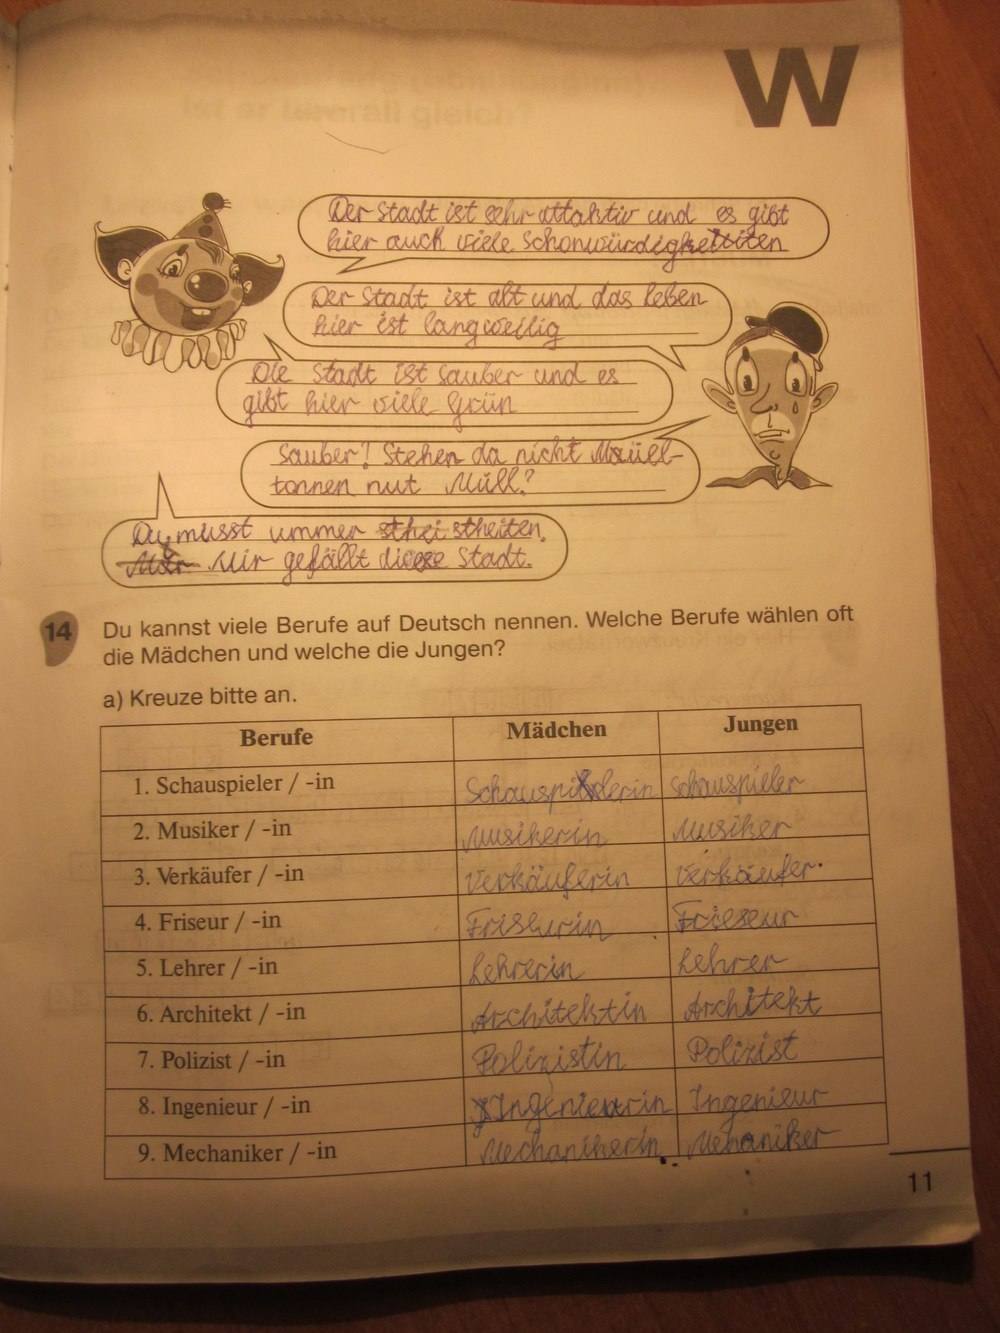 W
Der Stadt ist sehr attaktiv und es gibt
hier auch viele Schonwürdigkeititen
Der Stadt ist alt und das Leben
hier ist langweilig
Die Stadt ist sauber und es
gibt hier viele Grün
Sauber? Stehen da nicht Müll-
tonnen nut Müll?
Du musst ummer stheiten.
Mir gefällt diese Stadt.
14 Du kannst viele Berufe auf Deutsch nennen. Welche Berufe wählen oft
die Mädchen und welche die Jungen?
a) Kreuze bitte an.
Berufe Mädchen Jungen
1. Schauspieler / -in Schauspielerin Schauspieler
2. Musiker / -in Musikerin Musiker
3. Verkäufer / -in Verkäuferin Verkäufer.
4. Friseur / -in Friseurin Frieseur
5. Lehrer / -in Lehrerin Lehrer
6. Architekt / -in Architektin Architekt
7. Polizist / -in Polizistin Polizist
8. Ingenieur / -in Ingenieurin Ingenieur
9. Mechaniker / -in Mechanikerin Mehaniker
11